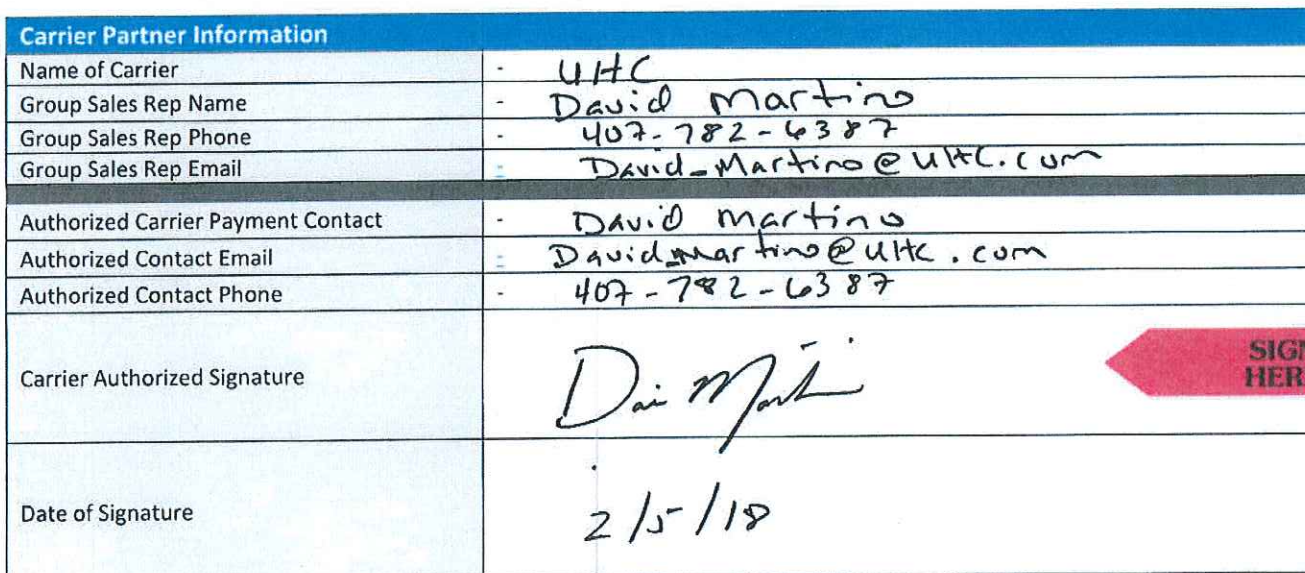 Carrier Partner Information
Name of Carrier - UHC
Group Sales Rep Name - David Martino
Group Sales Rep Phone - 407-782-6387
Group Sales Rep Email - David_Martino@UHC.com
Authorized Carrier Payment Contact - David Martino
Authorized Contact Email - David_Martino@UHC.com
Authorized Contact Phone - 407-782-6387
Carrier Authorized Signature
SIGN
HER
Date of Signature 2/5/18